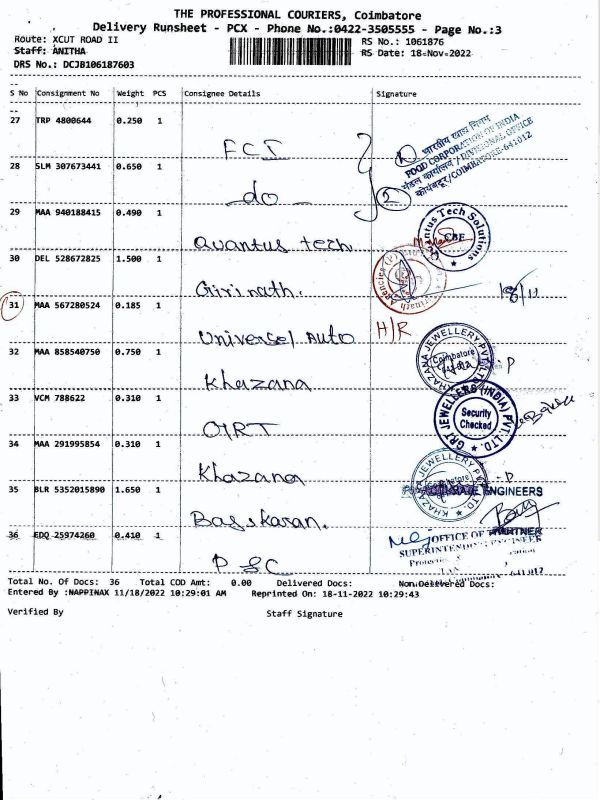 THE PROFESSIONAL COURIERS, Coimbatore
Delivery Runsheet - PCX - Phone No.:0422-3505555 - Page No.:3
Route: XCUT ROAD II
RS No.: 1061876
Staff: ANITHA
RS Date: 18-Nov-2022
DRS No.: DCJB106187603
S No Consignment No Weight PCS Consignee Details Signature
27 TRP 4800644 0.250 1
FCI
भारतीय खाद्य निगम
FOOD CORPORATION OF INDIA
मंडल कार्यालय / DIVISIONAL OFFICE
कोयंबटूर/COIMBATORE-641012
28 SLM 307673441 0.650 1
do
2
29 MAA 940188415 0.490 1
Quantus tech
Quantus Tech Solutions
CBE
30 DEL 528672825 1.500 1
Girinath.
18/11
31 MAA 567280524 0.185 1
Universal Auto H/R
32 MAA 858540750 0.750 1
Khazana
KHAZANA JEWELLERY PVT. LTD.
Coimbatore
33 VCM 788622 0.310 1
GRT
GRT JEWELLERS (INDIA) PVT. LTD.
Security
Checked
34 MAA 291995854 0.310 1
Khazana
KHAZANA JEWELLERY
35 BLR 5352015890 1.650 1
Baskaran.
ENGINEERS
PARTNER
36 EDQ 25974260 0.410 1
P&C
OFFICE OF THE
SUPERINTENDING ENGINEER
641 012
Total No. Of Docs: 36 Total COD Amt: 0.00 Delivered Docs: Non Delivered Docs:
Entered By :NAPPINAX 11/18/2022 10:29:01 AM Reprinted On: 18-11-2022 10:29:43
Verified By Staff Signature